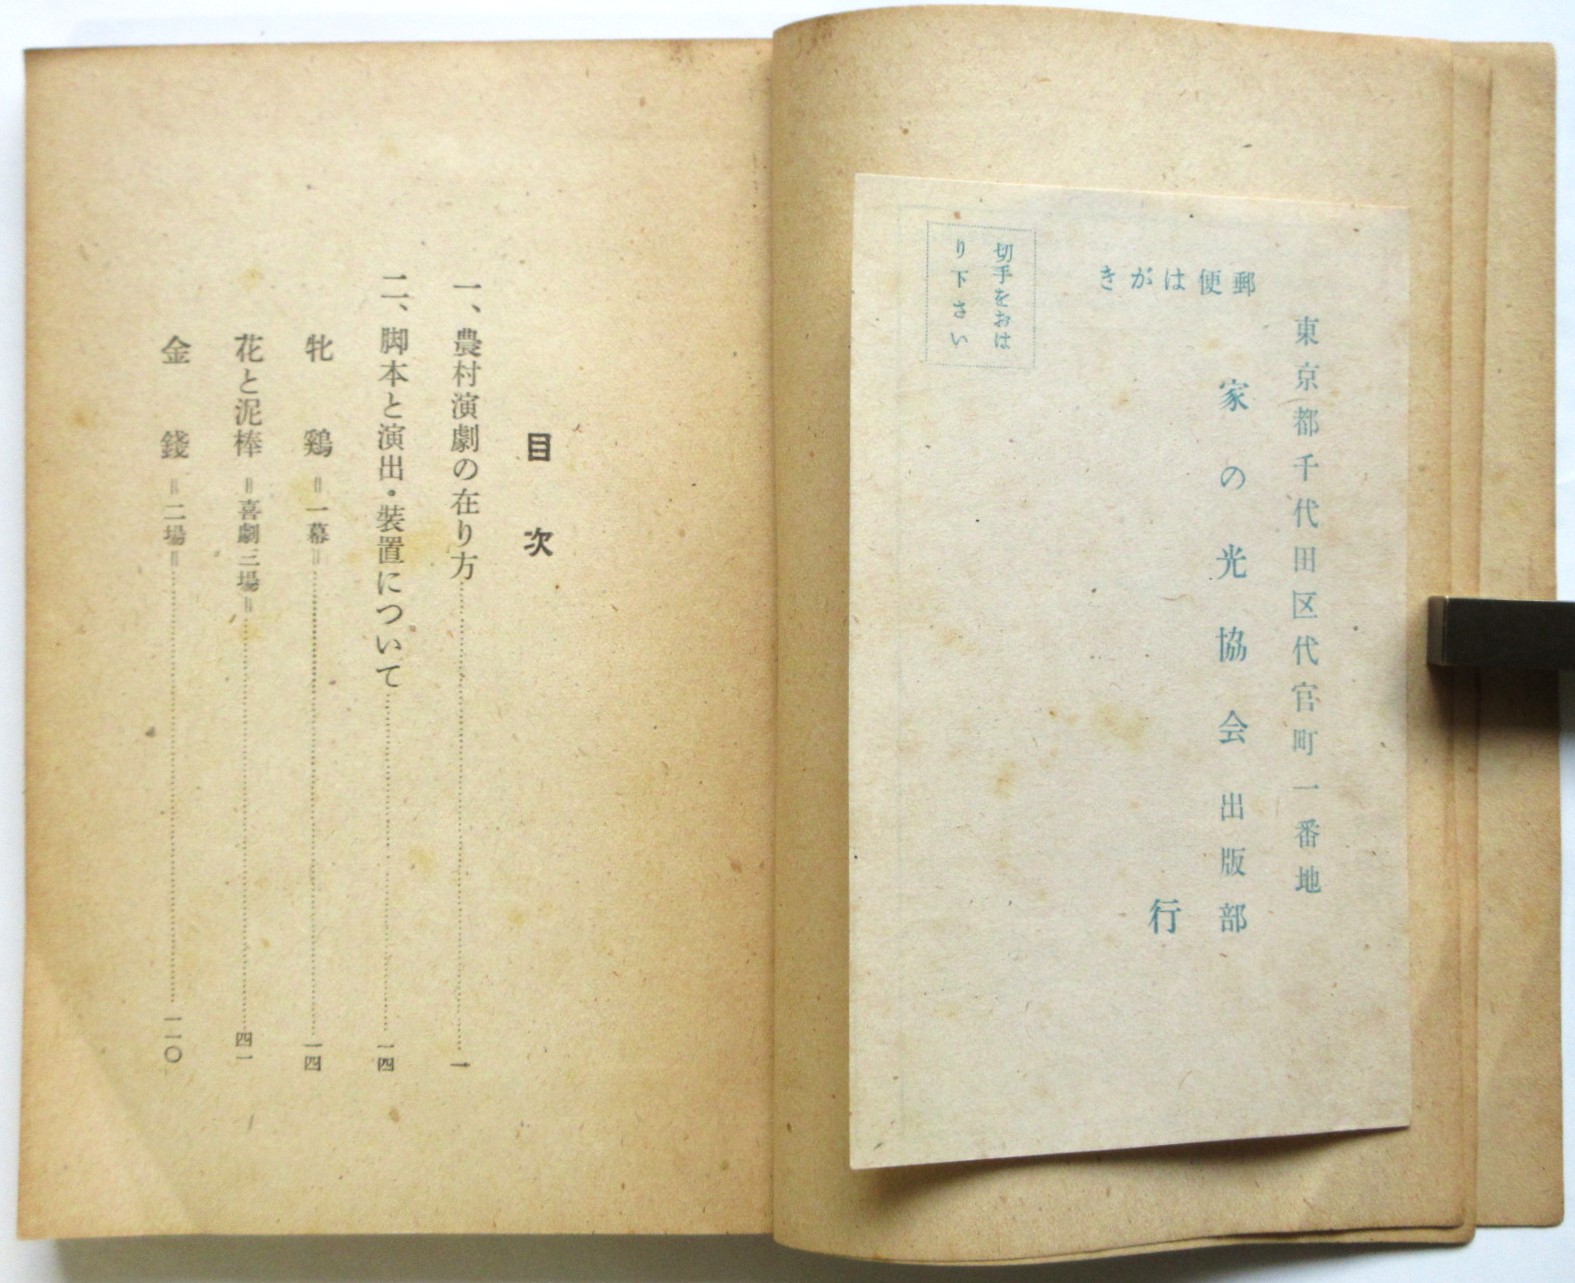 郵便はがき
東京都千代田区代官町一番地
家の光協会出版部
行
切手をおは
り下さい
目次
一、農村演劇の在り方……一
二、脚本と演出・装置について……一四
牝鶏＝一幕＝……一四
花と泥棒＝喜劇三場＝……四一
金錢＝二場＝……一一〇